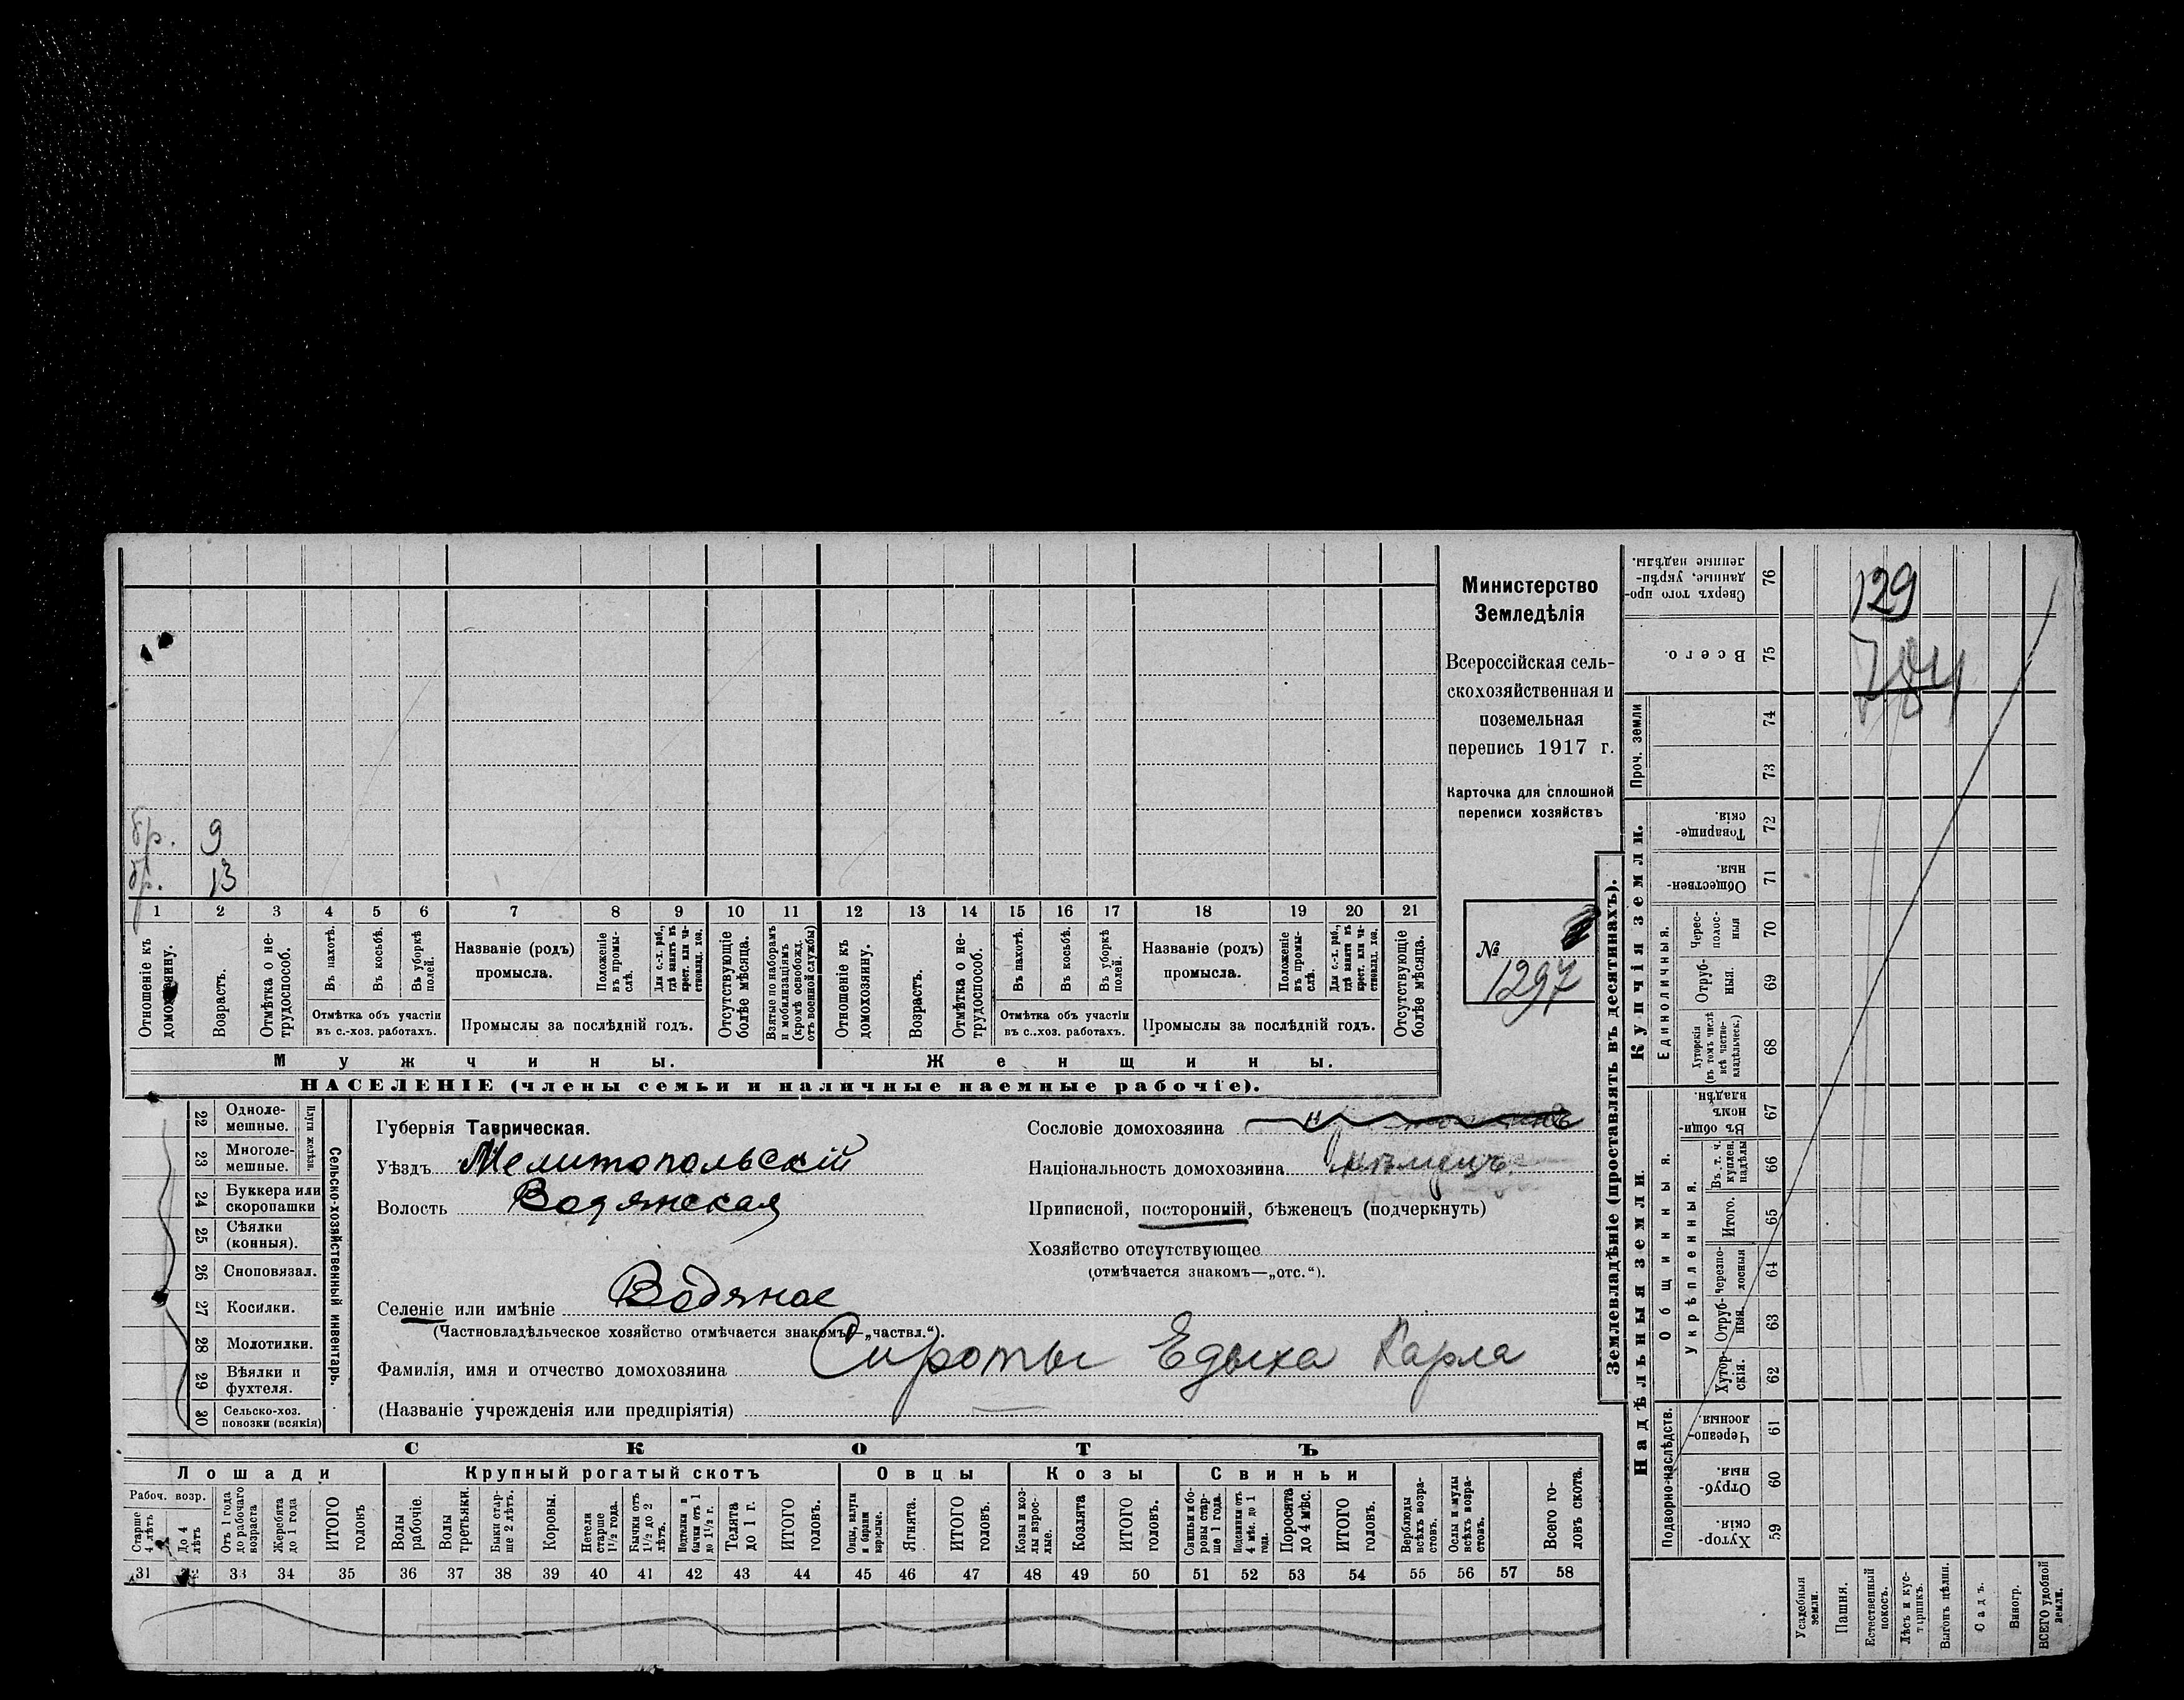 бр. 9
бр. 13
1 2 3 4 5 6 7 8 9 10 11 12 13 14 15 16 17 18 19 20 21
Отношеніе къ домохозяину.
Возрастъ.
Отмѣтка о нетрудоспособ.
Въ пахотѣ.
Въ косьбѣ.
Въ уборкѣ полей.
Отмѣтка объ участіи въ с.-хоз. работахъ.
Названіе (родъ) промысла.
Положеніе въ промыслѣ.
Для с.-х. раб., гдѣ занятъ въ крест. или частновлад. хоз.
Промыслы за послѣдній годъ.
Отсутствующіе болѣе мѣсяца.
Взятые по наборамъ и мобилизаціямъ (кромѣ освобожд. отъ военной службы)
Отношеніе къ домохозяину.
Возрастъ.
Отмѣтка о нетрудоспособ.
Въ пахотѣ.
Въ косьбѣ.
Въ уборкѣ полей.
Отмѣтка объ участіи въ с..хоз. работахъ.
Названіе (родъ) промысла.
Положеніе въ промыслѣ.
Для с.-х. раб., гдѣ занятъ въ крест. или частновлад. хоз.
Промыслы за послѣдній годъ.
Отсутствующіе болѣе мѣсяца.
Мужчины. Женщины.
НАСЕЛЕНІЕ (члены семьи и наличные наемные рабочіе).
Министерство
Земледѣлія
Всероссійская сель-
скохозяйственная и
поземельная
перепись 1917 г.
Карточка для сплошной
переписи хозяйствъ
№
1297
Сельско-хозяйственный инвентарь.
Плуги желѣзн.
22 Одноле-
мешные.
23 Многоле-
мешные.
24 Буккера или
скоропашки
25 Сѣялки
(конныя).
26 Сноповязал.
27 Косилки.
28 Молотилки.
29 Вѣялки и
фухтеля.
30 Сельско-хоз.
повозки (всякія)
Губернія Таврическая.
Уѣздъ Мелитопольскій
Волость Водянская
Селеніе или имѣніе Водяное
(Частновладѣльческое хозяйство отмѣчается знакомъ—„частвл.“).
Фамилія, имя и отчество домохозяина Сироты Едыха Карла
(Названіе учрежденія или предпріятія)
Сословіе домохозяина
Національность домохозяина нѣмецъ
Приписной, посторонній, бѣженецъ (подчеркнуть)
Хозяйство отсутствующее
(отмѣчается знакомъ—„отс.“).
СКОТЪ
Лошади Крупный рогатый скотъ Овцы Козы Свиньи
Рабоч. возр.
Старше 4 лѣтъ
До 4 лѣтъ
Отъ 1 года до рабочаго возраста
Жеребята до 1 года
ИТОГО головъ
Волы рабочіе.
Волы третьяки.
Быки старше 2 лѣтъ.
Коровы.
Нетели старше 1½ года.
Бычки отъ 1½ до 2 лѣтъ.
Подтелки и бычки отъ 1 до 1½ г.
Телята до 1 г.
ИТОГО головъ.
Овцы, валухи и бараны взрослые.
Ягнята.
ИТОГО головъ.
Козы и козлы взрослые.
Козлята
ИТОГО головъ.
Свиньи и боровы старше 1 года.
Подсвинки отъ 4 мѣс. до 1 года.
Поросята до 4 мѣс.
ИТОГО головъ.
Верблюды всѣхъ возрастовъ.
Ослы и мулы всѣхъ возрастовъ.
Всего головъ скота.
31 32 33 34 35 36 37 38 39 40 41 42 43 44 45 46 47 48 49 50 51 52 53 54 55 56 57 58
Землевладѣніе (проставлять въ десятинахъ).
Надѣльныя земли. Купчія земли. Проч. земли
Подворно-наслѣдств.
Общинныя.
Укрѣпленныя.
Единоличныя.
Хуторскія. 59
Отрубныя. 60
Черезполосныя. 61
Хуторскія. 62
Отрубныя. 63
Черезполосныя 64
Итого. 65
Въ т. ч. куплен. надѣлы 66
Въ общинномъ владѣн. 67
Хуторскія (въ томъ числѣ всѣ частновладѣльческ.) 68
Отрубныя. 69
Чересполосныя 70
Общественныя. 71
Товарищескія. 72
73
74
Всего. 75
Сверхъ того проданные, укрѣпленные надѣлы. 76
129
784
Усадебныя земли.
Пашня.
Естественный покосъ.
Лѣсъ и кустарникъ.
Выгонъ цѣлин.
Садъ.
Виногр.
ВСЕГО удобной земли.